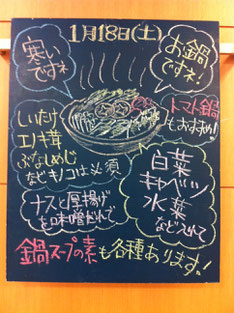 1月18日(土)
寒い
ですネ
お鍋
ですネ!
トマト鍋
もおすすめ!
しいたけ
エノキ茸
ぶなしめじ
などキノコは必須
白菜
キャベツ
水菜
など入れて
ナスと厚揚げ
を味噌だれで
鍋スープの素も各種あります!